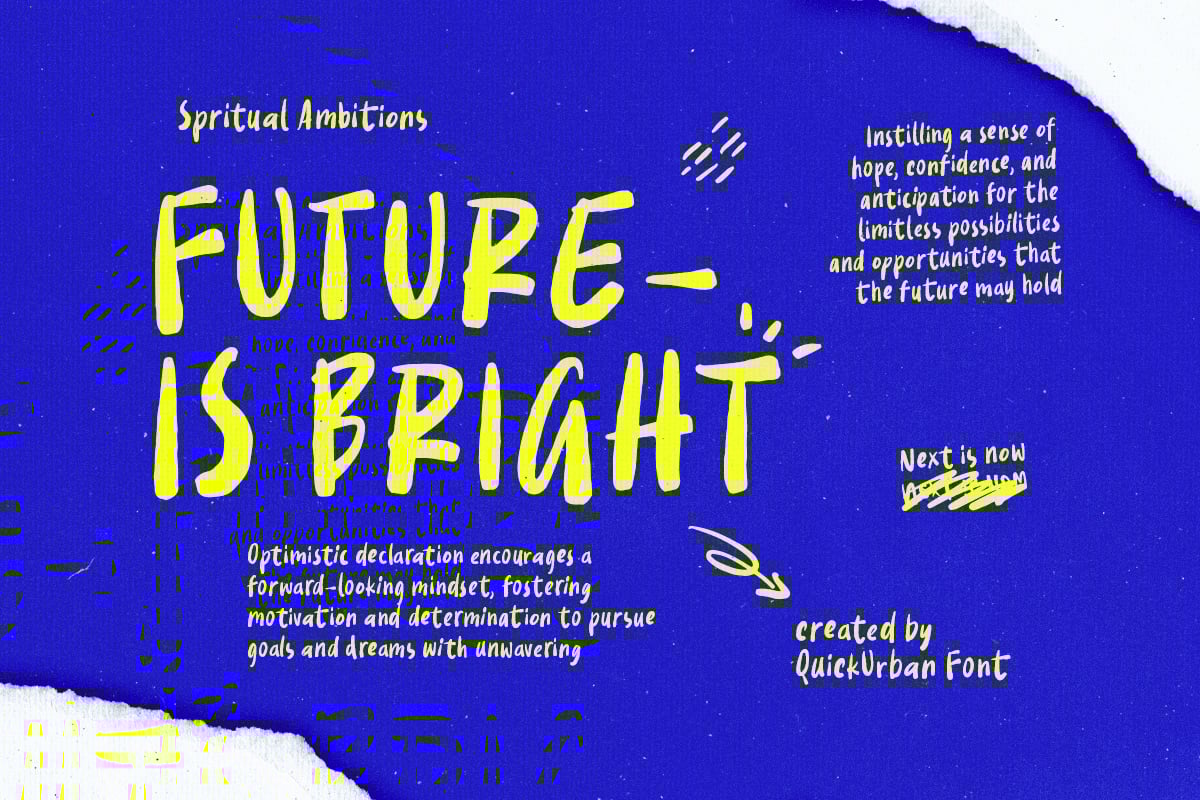 Spritual Ambitions
FUTURE–
IS BRIGHT
Instilling a sense of
hope, confidence, and
anticipation for the
limitless possibilities
and opportunities that
the future may hold
Next is now
Next is now
Optimistic declaration encourages a
forward-looking mindset, fostering
motivation and determination to pursue
goals and dreams with unwavering
created by
QuickUrban Font